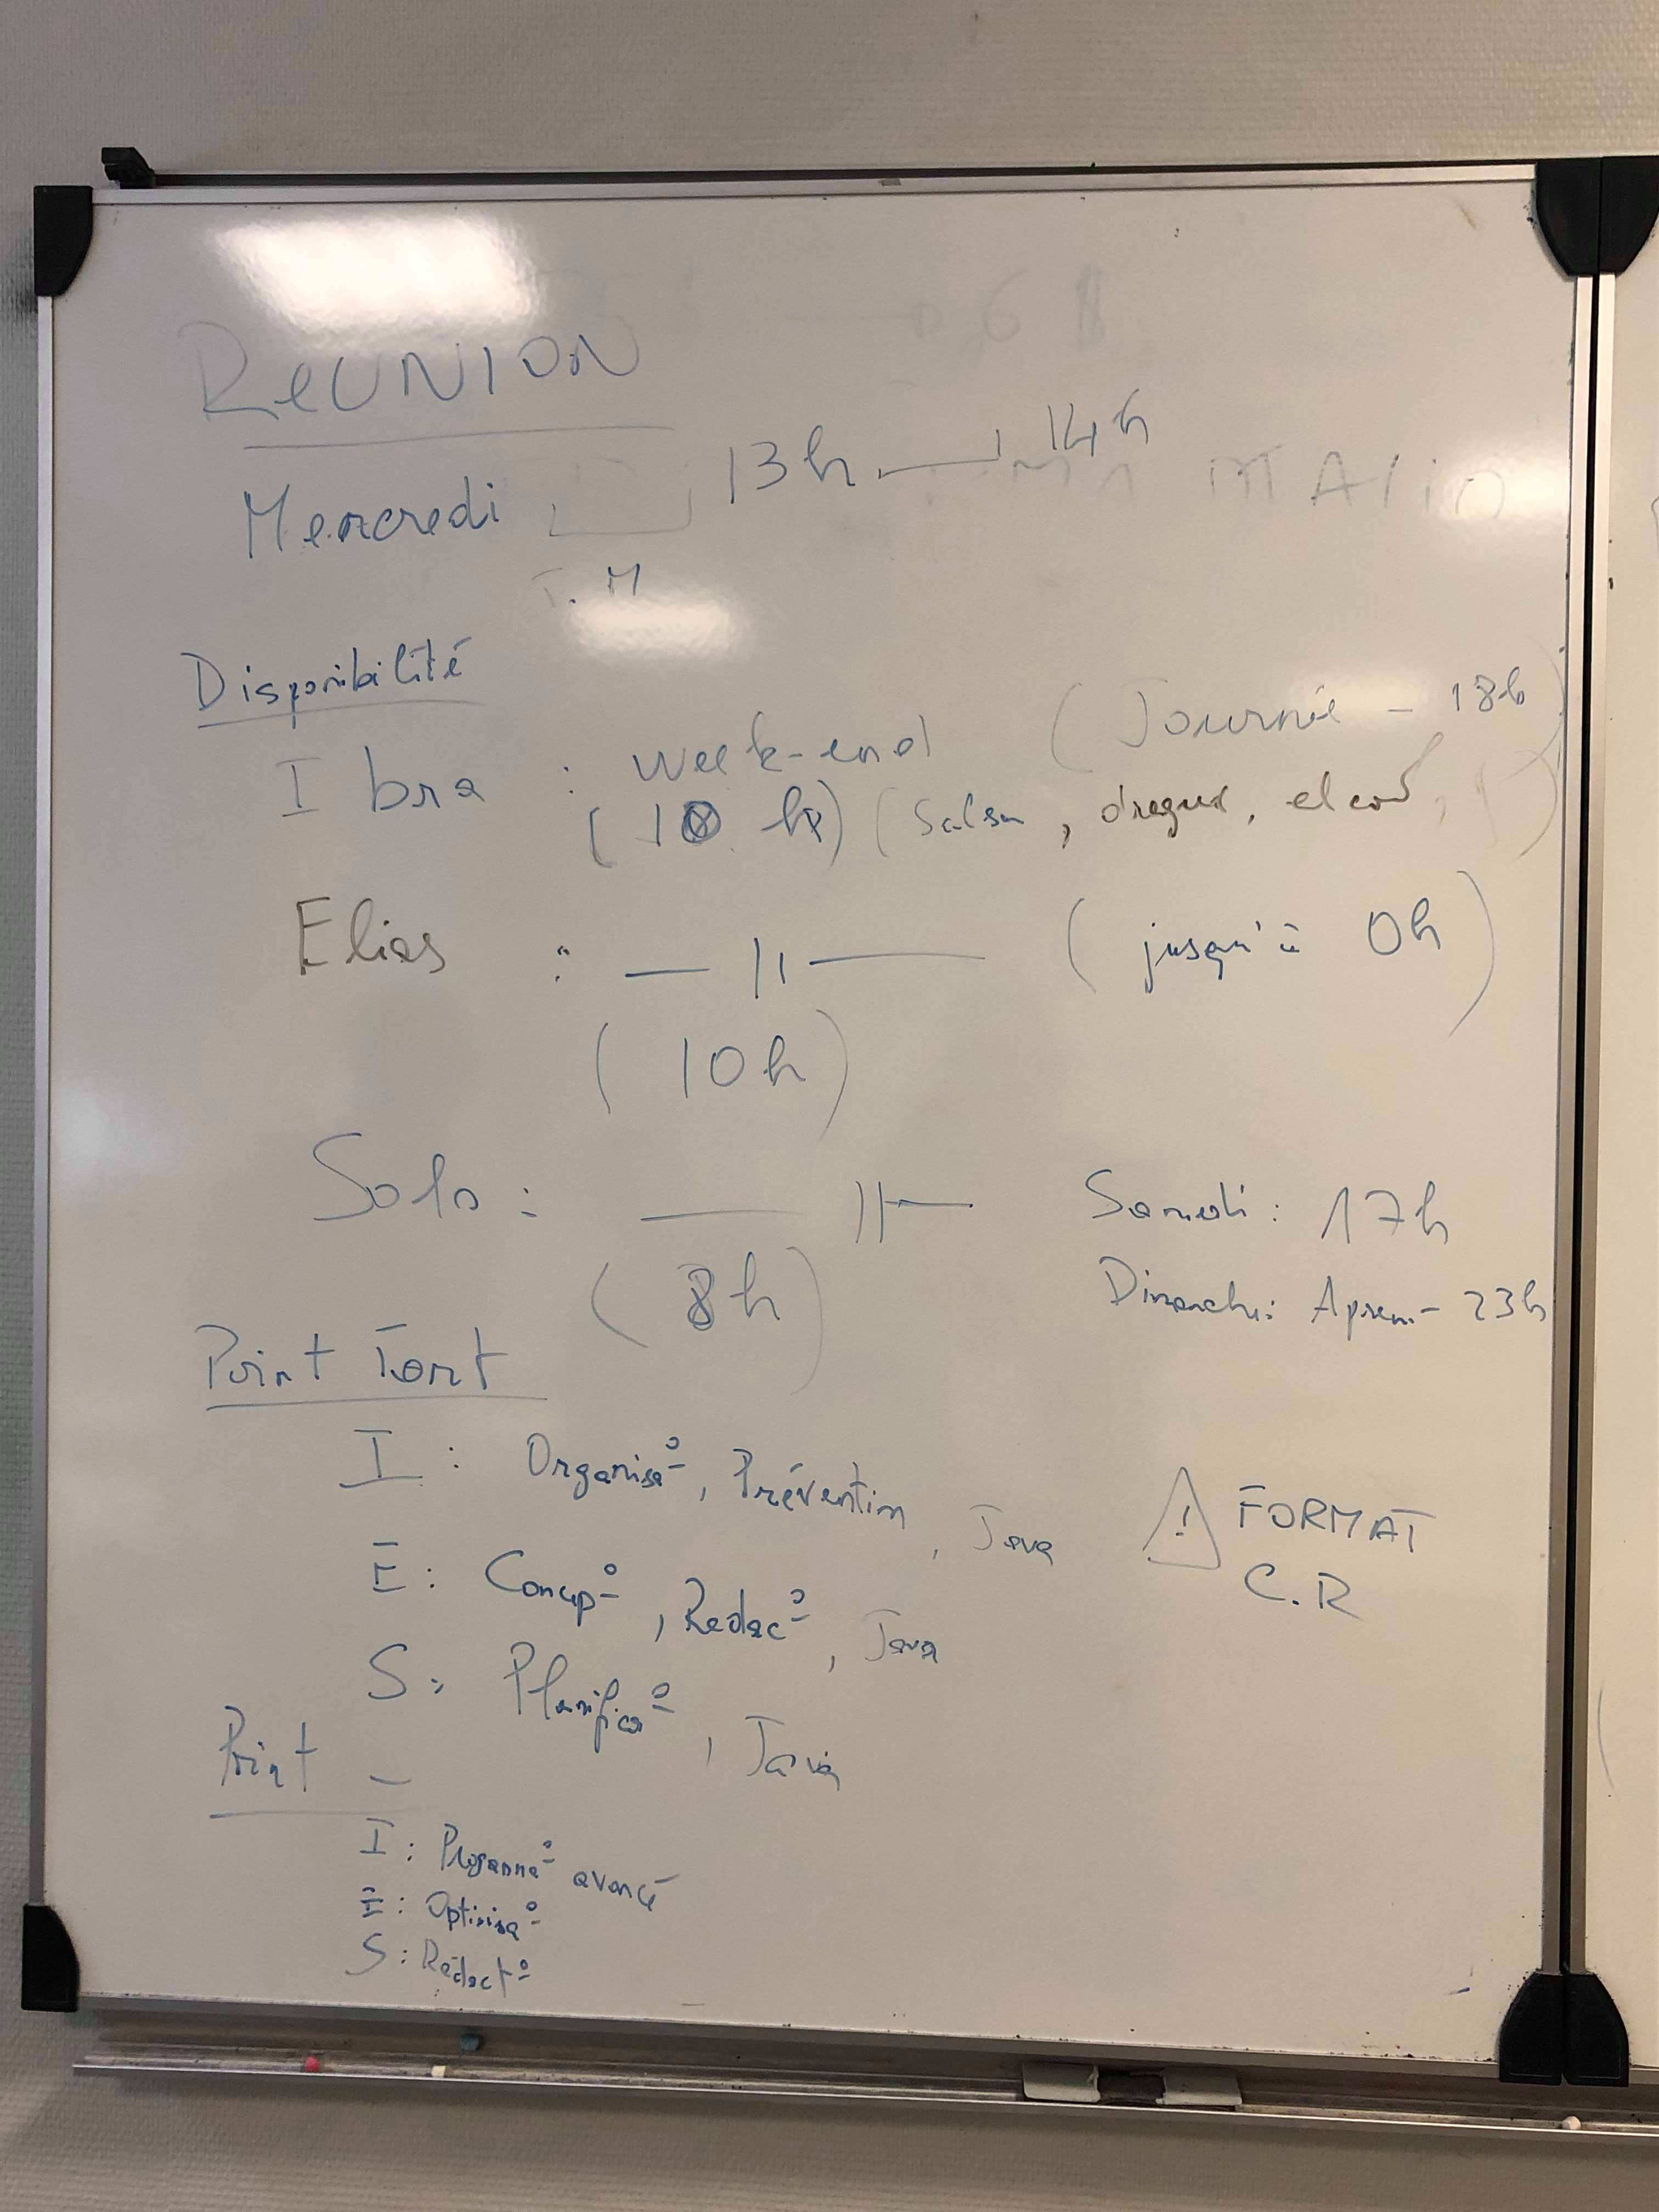 REUNION
Mercredi 13h — 14h
T.M
Disponibilité
Ibra : week-end (Journée - 18h)
(10 h) (Salsa, drague,
Elias : — 11 — (jusqu'à 0h)
(10h)
Solo : — 11 — Samedi : 17h
(8h) Dimanche : Aprem - 23h
Point Fort
I : Organisa°, Prévention, Java
⚠ FORMAT
C.R
E : Concep°, Rédac°, Java
S : Planifica°, Java
Point -
I : Programma° avancé
E : Optimisa°
S : Rédact°